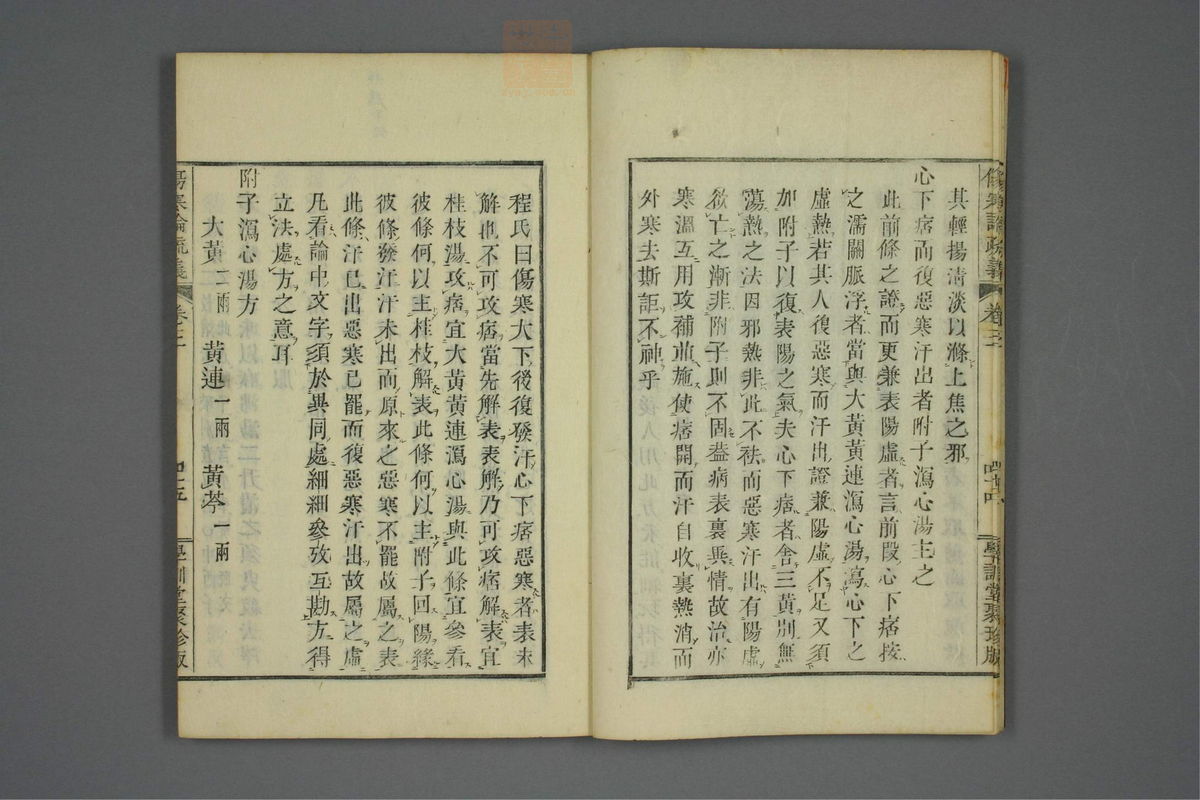 其輕揚清淡以滌上焦之邪
心下痞而復惡寒汗出者附子瀉心湯主之
此前條之證而更兼表陽虛者言前段心下痞按
之濡關脈浮者當與大黃黃連瀉心湯瀉心下之
虛熱若其人復惡寒而汗出證兼陽虛不足又須
加附子以復表陽之氣夫心下痞者舍三黃別無
蕩熱之法因邪熱非此不祛而惡寒汗出有陽虛
欲亡之漸非附子則不固葢病表裏異情故治亦
寒溫互用攻補並施使痞開而汗自收裏熱消而
外寒去斯詎不神乎
傷寒論疏義
卷三
四十四
學訓堂聚珍版
程氏曰傷寒大下後復發汗心下痞惡寒者表未
解也不可攻痞當先解表表解乃可攻痞解表宜
桂枝湯攻痞宜大黃黃連瀉心湯與此條宜參看
彼條何以主桂枝解表此條何以主附子回陽緣
彼條發汗汗未出而原來之惡寒不罷故屬之表
此條汗已出惡寒已罷而復惡寒汗出故屬之虛
凡看論中文字須於異同處細細參攷互勘方得
立法處方之意耳
附子瀉心湯方
大黃二兩 黃連一兩 黃芩一兩
傷寒論疏義
卷三
四十五
學訓堂聚珍版